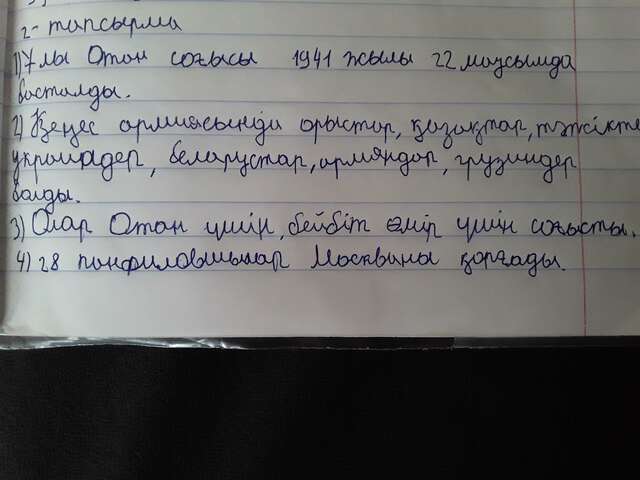 2-тапсырма
1) Ұлы Отан соғысы 1941 жылы 22 маусымда
басталды.
2) Кеңес армиясында орыстар, қазақтар, тәжікте
украиндер, беларустар, армяндар, грузиндер
болды.
3) Олар Отан үшін, бейбіт өмір үшін соғысты.
4) 28 панфиловшылар Москваны қорғады.